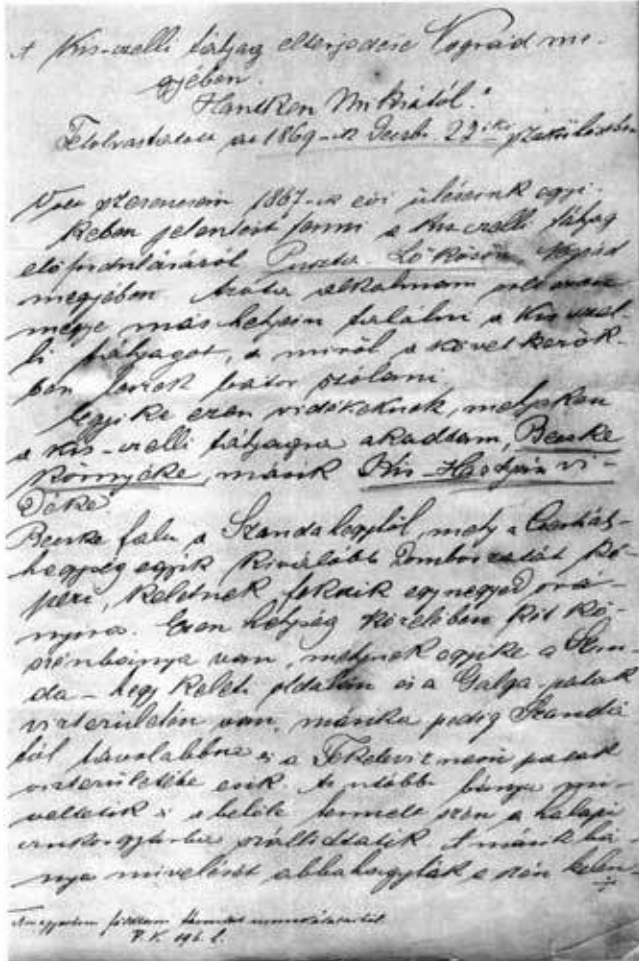 A Kis-czelli tályag elterjedése Nográd me-
gyében.
Hantken Miksától.*
Felolvastatott az 1869-ik Decbr. 22-iki szakülésben
Volt szerencsém 1867-ik évi üléseink egyi-
kében jelentést tenni a kis-czelli tályag
előfordulásáról Puszta-Lökösön Nográd
megyében. Azóta alkalmam volt azon
megye más helyein találni a Kis-czel-
li tályagot, a miről a következők-
ben leszek bátor szólani.
Egyike ezen vidékeknek, melyeken
a kis-czelli tályagra akadtam, Becske
környéke, másik Kis-Hartyán vi-
déke
Becske falu a Szandahegytől, mely a Cserhát-
hegység egyik kiválóbb domborzatát ké-
pezi, keletnek fekszik egy negyed órá-
nyira. Ezen helység közelében két kő-
szénbánya van, melynek egyike a Szan-
da-hegy keleti oldalán és a Galga-patak
vizterületén van, másika pedig Szandá-
tól távolabbra és a Feketeviz nevü patak
vizterületébe esik. Az utóbbi bánya mi-
veltetik s abelőle termelt szén a
szállíttatik. A másik bá-
nya mivelését abbahagyták a szén
A magyarhoni földtani társulat munkálataiból
V. K. 196. l.